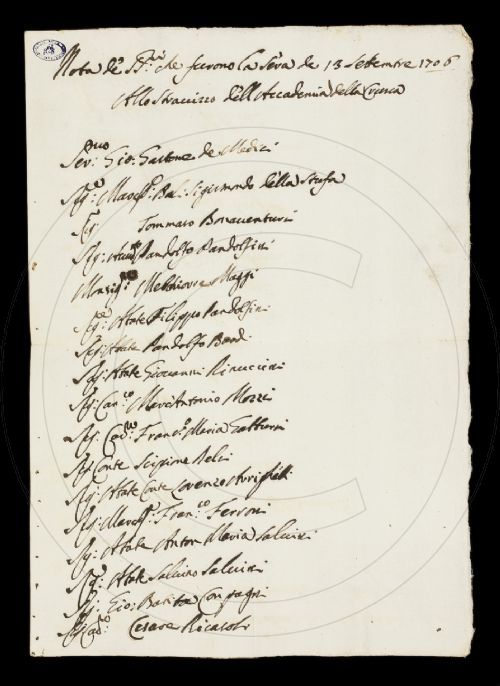 Nota de SS.ri che furono la sera de 13 Settembre 1706
Allo Stravizzo dell'Accademia della Crusca
Ser:mo Gio: Gastone de Medici
Sig.e March.e Bal: Sigismondo della Stufa
Sig: Tommaso Bonaventuri
Sig: Pandolfo Pandolfini
Monsig.e Melchiorre Maggi
Sig.e Abate Filippo Pandolfini
Sig: Abate Pandolfo Bard
Sig: Abate Giovanni Rinuccini
Sig: Can:co MarcAntonio Mozzi
Sig: Franc:o Maria Gatturri
Sig: Conte Scipione
Sig: Abate Conte Lorenzo
Sig: March.e Fran:co Ferroni
Sig: Abate Anton Maria Salvini
Sig: Abate Salvino Salvini
Sig: Gio: Batista Compagni
Sig: Cav:o Cesare Ricasoli